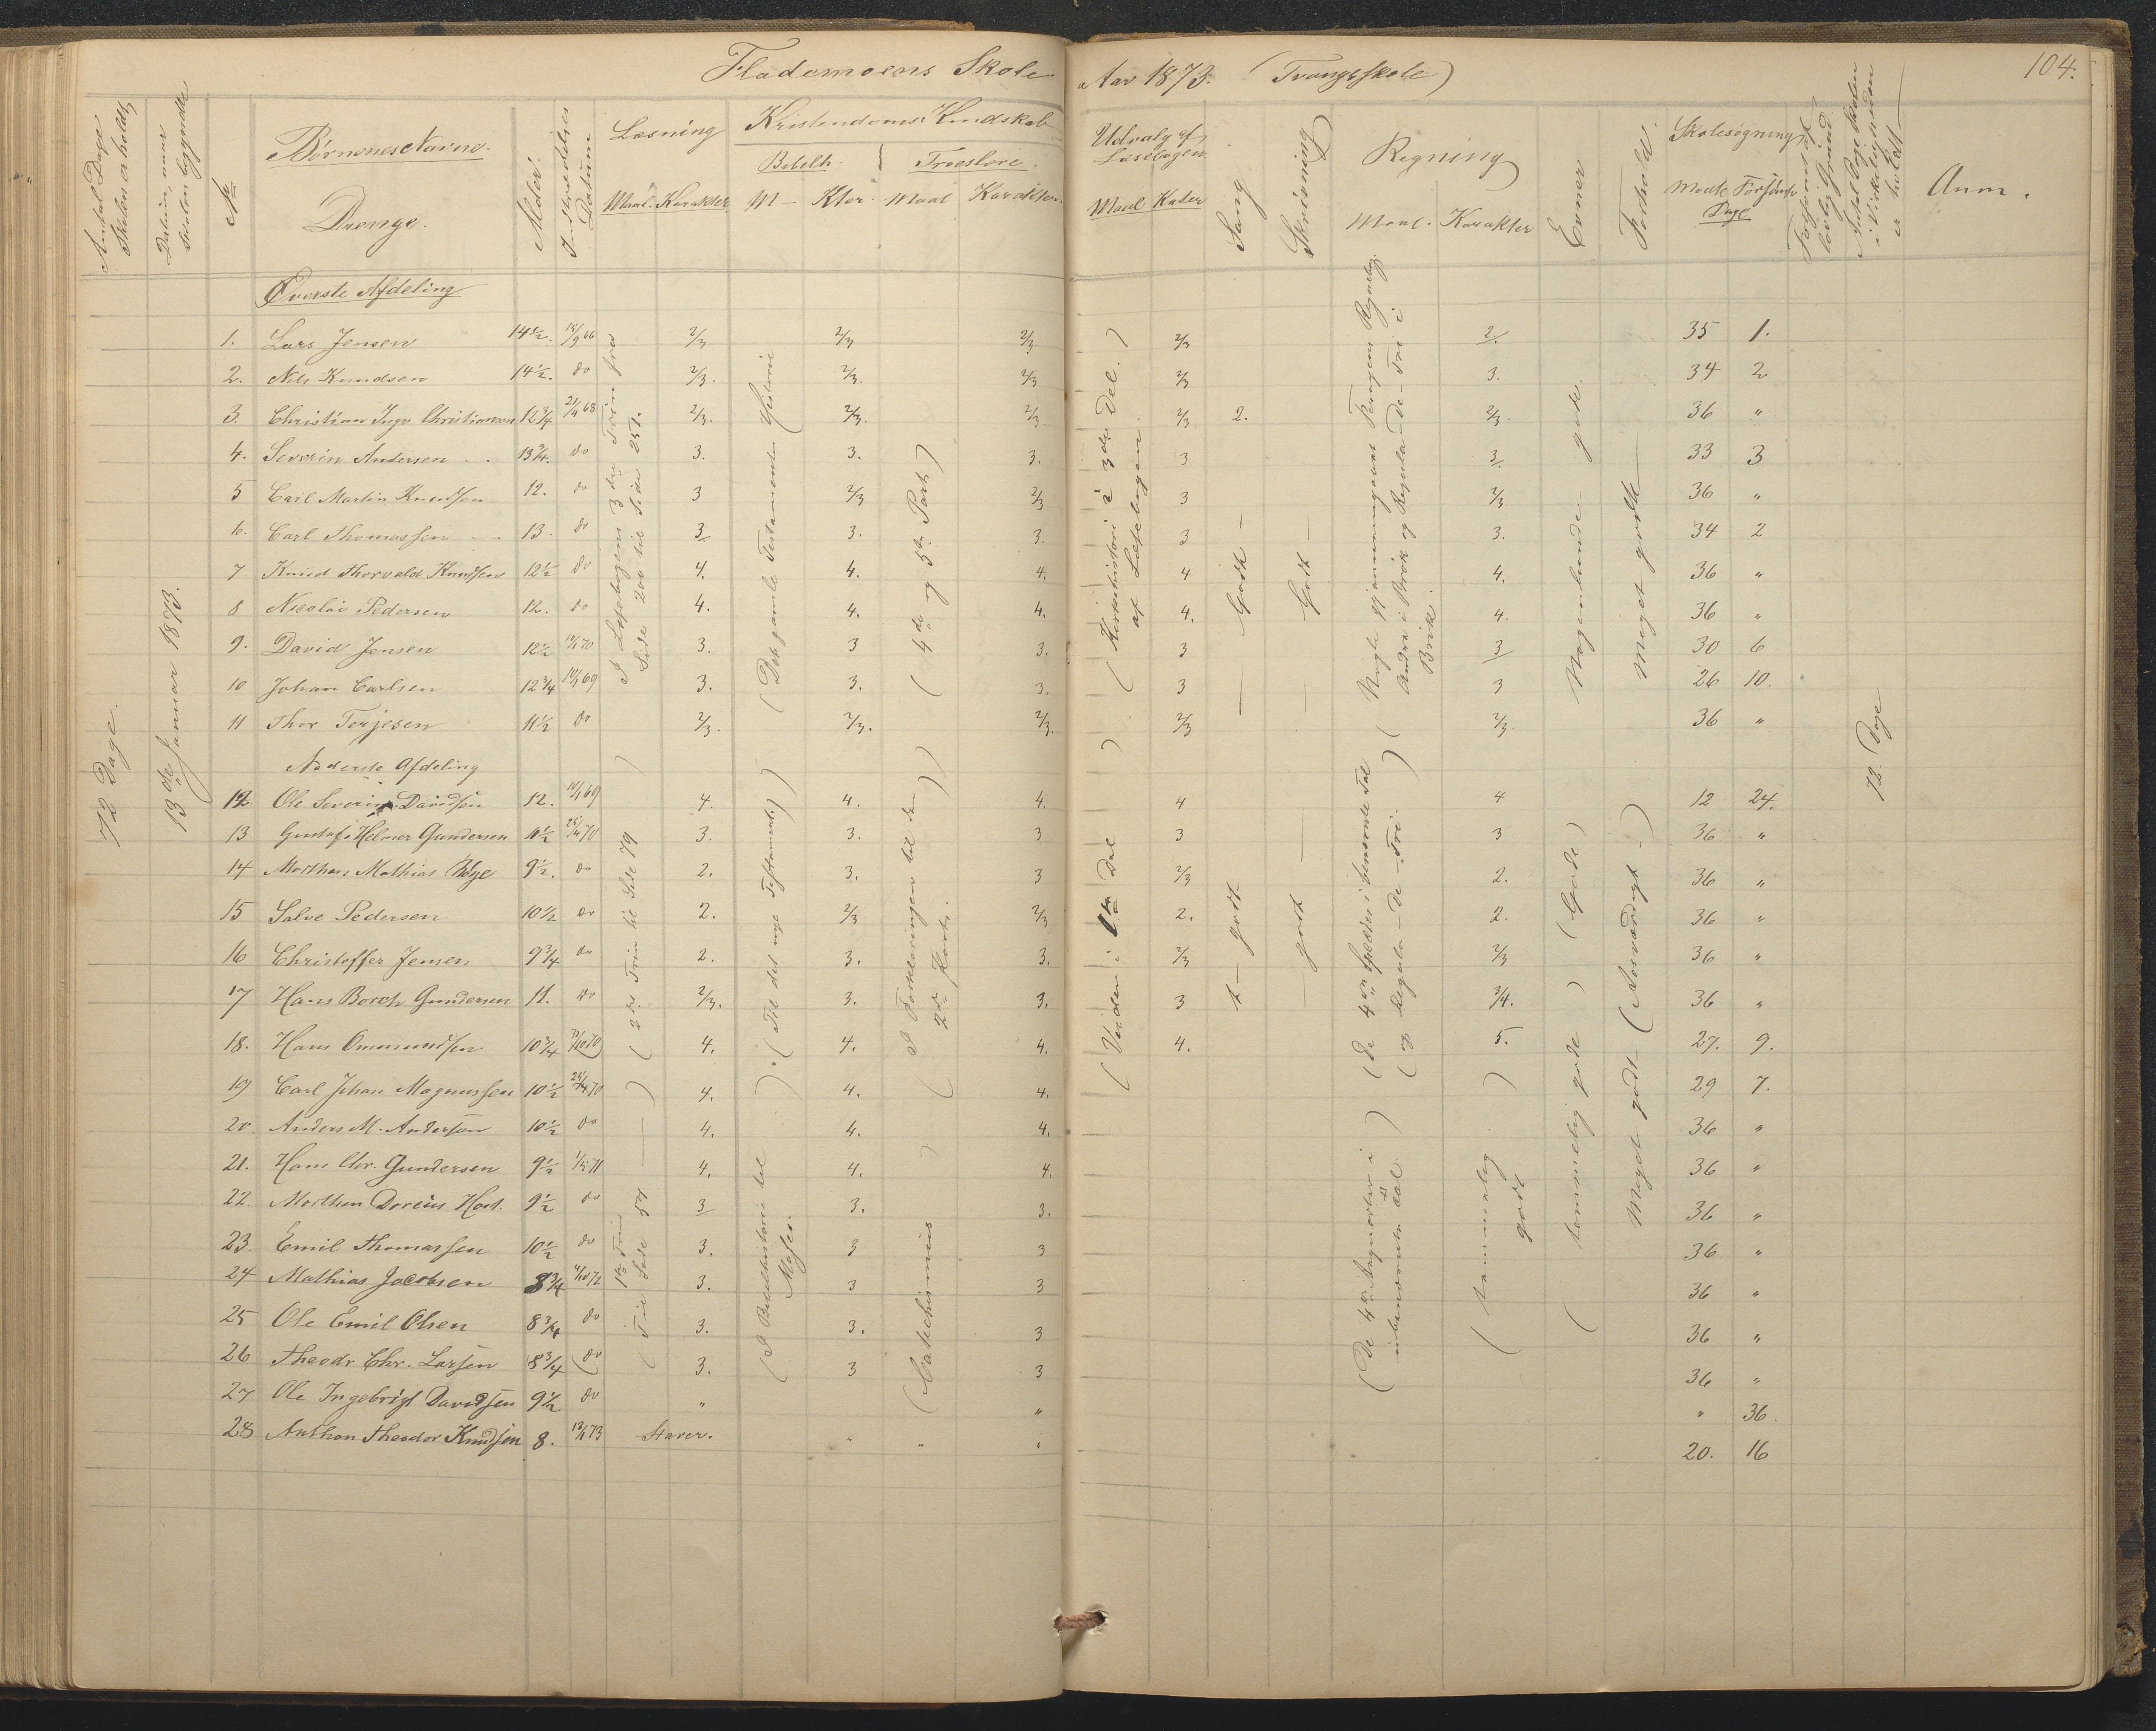 Flademoens Skole Aar 1873. (Tvangsskole) 104.
Antal Dage Skolen er holdt
Datum, naar Skolen begyndte
No
Børnenes Navne.
Drenge.
Alder.
Indtrædelses Datum
Læsning
Maal. Karakter.
Kristendoms Kundskab
Bibelh. Troeslære.
M— Kter. Maal Karakter.
Udvalg af Læsebogen.
Maal Kakter
Sang
Skrivning
Regning
Maal. Karakter
Evner
Forhold.
Skolesøgning
Mødte Forsømte
Dage
Forsømt af lovlig Grund
Antal Dage Skolen i Virkeligheden er holdt
Anm.
72 Dage.
13de Januar 1873.
72. Dage
Øverste Afdeling
1. Lars Jensen 14½. 18/9 66 2/3 2/3 2/3 2/3 2. 35 1.
2. Nils Knudsen 14½. do 2/3. 2/3. 2/3 2/3 3. 34 2
3. Christian Inge Christiansen 12¾ 21/9 68 2/3. 2/3. 2/3. 2/3 2. 2/3. 36 "
4. Severin Andersen 13¾. do 3. 3. 3. 3 3 33 3
5 Carl Martin Knudsen 12. do 3 2/3 2/3 3 2/3 36 "
6. Carl Thomassen 13. do 3 3. 3. 3 3. 34 2
7 Knud Thorvald Knudsen 12½ do 4. 4. 4. 4 4. 36 "
8 Nicolai Pedersen 12. do 4. 4. 4. 4. 4. 36 "
9. David Jensen 12½ 3. 3 3. 3 3 30 6
10 Johan Carlsen 12¾ 3. 3. 3. 3 3 26 10.
11 Thor Terjesen 11½ do 2/3. 2/3. 2/3. 2/3 2/3. 36 "
I Læsebogens 3die Trin fra Side 200 til Side 251.
(Det gamle Testamentes Historie
(4de og 5te Part)
(Kirkehistorie i 3die Del.) af Læsebogen.
— Godt —
— Godt —
Nogenlunde gode.
Meget godt
Nederste Afdeling
12 Ole Severin Davidsen 12. 4. 4. 4. 4 4 12 24.
13 Gustaf Helmer Gundersen 11½ 3. 3. 3 3 3 36 "
14 Morthen Mathias 9½. do 2. 3. 3 2/3 2. 36 "
15 Salve Pedersen 10½ do 2. 2/3 2/3 2. 2. 36 "
16 Christoffer Jensen 9¾ do 2. 3. 3. 2/3 2/3 36 "
17 Hans Borch Gundersen 11. do 2/3. 3. 3. 3 3/4. 36 "
18. Hans Ommundsen 10¾ 4. 4. 4. 4. 5. 27. 9.
19 Carl Johan Magnussen 10½ 4. 4. 4. 29 7.
20. Anders M. Andersen 10½ do 4. 4. 4. 36 "
21. Hans Chr. Gundersen 9½ 4. 4. 4. 36 "
22. Morthen Doreius Hort. 9½ do 3 3. 3. 36 "
23. Emil Thomassen 10½ do 3. 3 3 36 "
24 Mathias Jacobsen 8¾ 3. 3 3 36 "
25 Ole Emil Olsen 8¾ do 3. 3. 3 36 "
26 Theodr Chr. Larsen 8¾ do 3. 3 3 36 "
27 Ole Ingebrigt Davidsen 9½ do " " " 36.
28 Anthon Theodor Knudsen 8. Staver. " " " 20. 16
(2det Trin til Side 79
(1ste Trin Til Side 54
(Til det nye Testament.)
(I Bibelhistorie til Moses.
(I Forklaringen til den 2den Part.
(Catechismus
(Verden i 1ste Del
— godt
— godt
(De 4 Spesier i benevnte Tal)
(og Regula-De-Tri.
(De 4 Regnarter i ubenevnte Tal.)
(temmelig godt
(temmelig gode) (Gode)
Meget godt (Nosværdigt.)